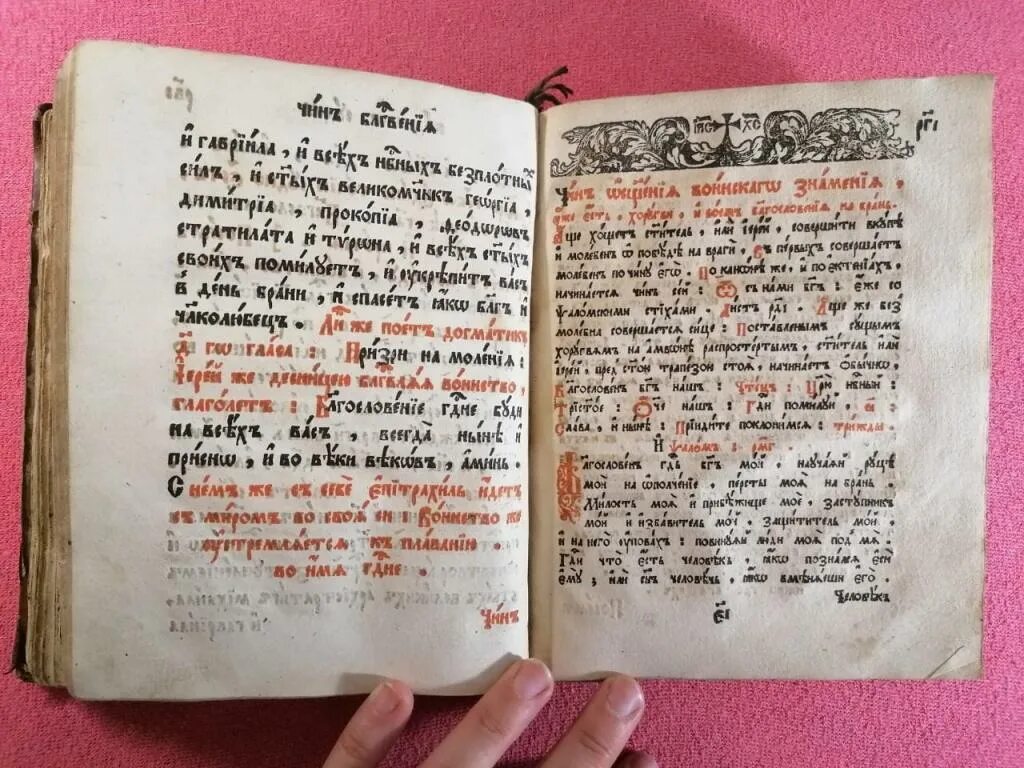 чи́нъ блг҃ве́нїѧ
и҆ гаврїи́ла , и҆ всѣ́хъ нбⷭ҇ныхъ безпло́тныⷯ
си́лъ , и҆ ст҃ы́хъ великомч҃къ геѡ́ргїа ,
дими́трїа , проко́пїа , ѳео́дѡрѡвъ
стратила́та и҆ ти́рѡна , и҆ всѣ́хъ ст҃ы́хъ
свои́хъ поми́луетъ , и҆ ᲂу҆крѣпи́тъ ва́съ
в̾ де́нь бра́ни , и҆ спасе́тъ ꙗ҆́кѡ бл҃гъ и҆
чл҃колю́бецъ . Ли́къ же пое́тъ догма́тикъ
д҃ гѡ гла́са : При́зри на моле́нїѧ :
І҆ере́й же десни́цею блг҃влѧ́ѧ во́инство ,
глаго́летъ : Блгⷭ҇ове́нїе гдⷭ҇не бу́ди
на всѣ́хъ ва́съ , всегда̀ ны́нѣ и҆
при́снѡ , и҆ во вѣ́ки вѣкѡ́въ , а҆ми́нь .
Сне́мъ же съ себѐ є҆пїтрахи́ль и҆́детъ
съ ми́ромъ во своѧ̑ си : Во́инство же
ᲂу҆стремлѧ́етсѧ къ пла́ванїю .
во и҆́мѧ гдⷭ҇не .
Чи́нъ
І҆И҃С ХС҃
рг҃і
Чи́нъ ѡ҆сщ҃е́нїѧ во́инскагѡ зна́менїѧ ,
є҆́же є҆́сть , хорꙋ́гви , и҆ во́евъ блгⷭ҇ове́нїѧ на бра́нь .
А҆́ще хо́щетъ ст҃и́тель , и҆лѝ і҆ере́й , соверши́ти вкꙋ́пѣ
и҆ моле́бенъ ѡ҆ побѣ́дѣ на врагѝ , с̾ пе́рвыхъ соверша́етъ
моле́бенъ по чи́нꙋ є҆гѡ̀ . По кано́нѣ же , и҆ по є҆ктенїа́хъ .
начина́етсѧ чи́нъ се́й : Ѿ с̾ на́ми бг҃ъ : є҆́же со
ѱало́мскими стїха́ми . Ли́стъ рд҃і . А҆́ще же без̾
моле́бна соверша́етсѧ си́це : Поста́вленымъ сꙋ́щымъ
хорꙋ́гвѧмъ на а҆мво́нѣ распросте́ртымъ , ст҃и́тель и҆лѝ
і҆ере́й , пред̾ ст҃о́ю трапе́зою стоѧ̀ , начина́етъ ѻ҆бы́чнѡ ,
Блгⷭ҇ове́нъ бг҃ъ на́шъ : Чте́цъ : Цр҃ю̀ нбⷭ҇ный :
Трист҃о́е : Ѻ҆́ч҃е на́шъ : Гдⷭ҇и поми́лꙋй ,
Сла́ва , и҆ ны́нѣ : Прїиди́те поклони́мсѧ : три́жды .
И҆ Ѱало́мъ : рм҃г .
Блгⷭ҇ове́нъ гдⷭ҇ь бг҃ъ мо́й , наꙋча́ѧй рꙋ́цѣ
моѝ на ѡ҆полче́нїе , пе́рсты моѧ̑ на бра́нь .
Ми́лость моѧ̀ и҆ прибѣ́жище моѐ , застꙋ́пникъ
мо́й и҆ и҆зба́витель мо́й , защи́титель мо́й ,
и҆ на него̀ ᲂу҆пова́хъ : повинꙋ́ѧй лю́ди моѧ̑ под̾ мѧ̀ .
Гдⷭ҇и что̀ є҆́сть человѣ́къ , ꙗ҆́кѡ позна́лсѧ є҆сѝ
є҆мꙋ̀ ; и҆лѝ сн҃ъ человѣ́чь , ꙗ҆́кѡ вмѣнѧ́еши є҆го̀ .
Человѣ́къ